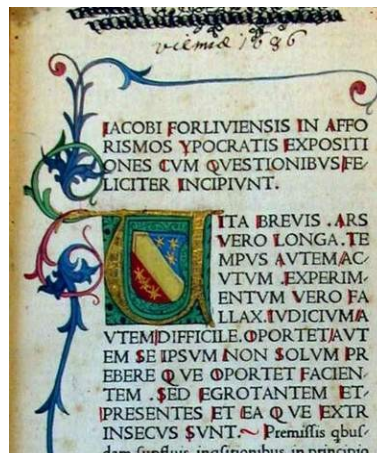 viennæ 1686
IACOBI FORLIVIENSIS IN AFFO
RISMOS YPOCRATIS EXPOSITI
ONES CVM QVESTIONIBVS FE/
LICITER INCIPIVNT.
VITA BREVIS . ARS
VERO LONGA. TE
MPVS AVTEM AC/
VTVM . EXPERIM/
ENTVM VERO FA
LLAX. IVDICIVM A
VTEM DIFFICILE. OPORTET AVT
EM SE IPSVM NON SOLVM PR
EBERE QVE OPORTET FACIEN/
TEM . SED EGROTANTEM ET/
PRESENTES ET EA QVE EXTR
INSECVS SVNT. ~ Premissis qbus/
dam supfluis inqsitionibus in principio